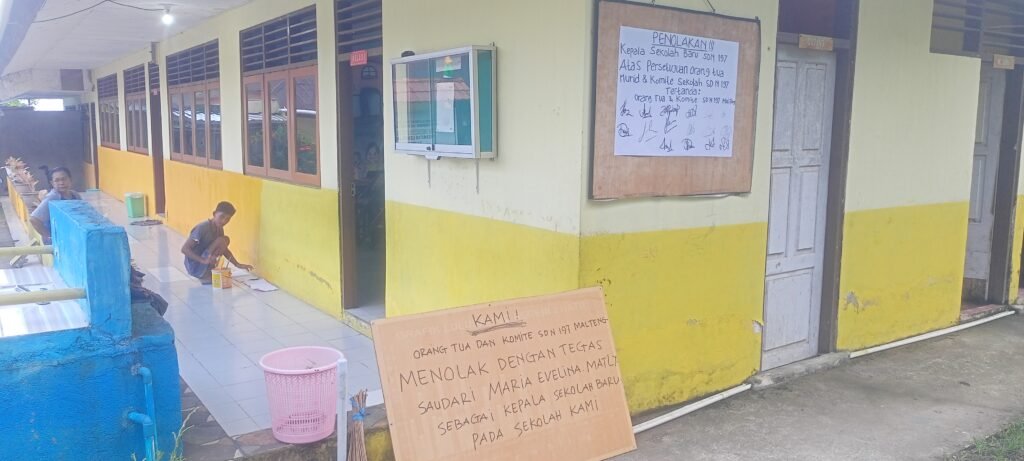 PENOLAKAN !!!
Kepala Sekolah Baru SDN 197
Atas Persetujuan orang tua
Murid & Komite Sekolah SDN 197
Tertanda:
Orang Tua & Komite SDN 197 Malteng
KAMI !
ORANG TUA DAN KOMITE SDN 197 MALTENG
MENOLAK DENGAN TEGAS
SAUDARI MARIA EVELINA MATLY
SEBAGAI KEPALA SEKOLAH BARU
PADA SEKOLAH KAMI